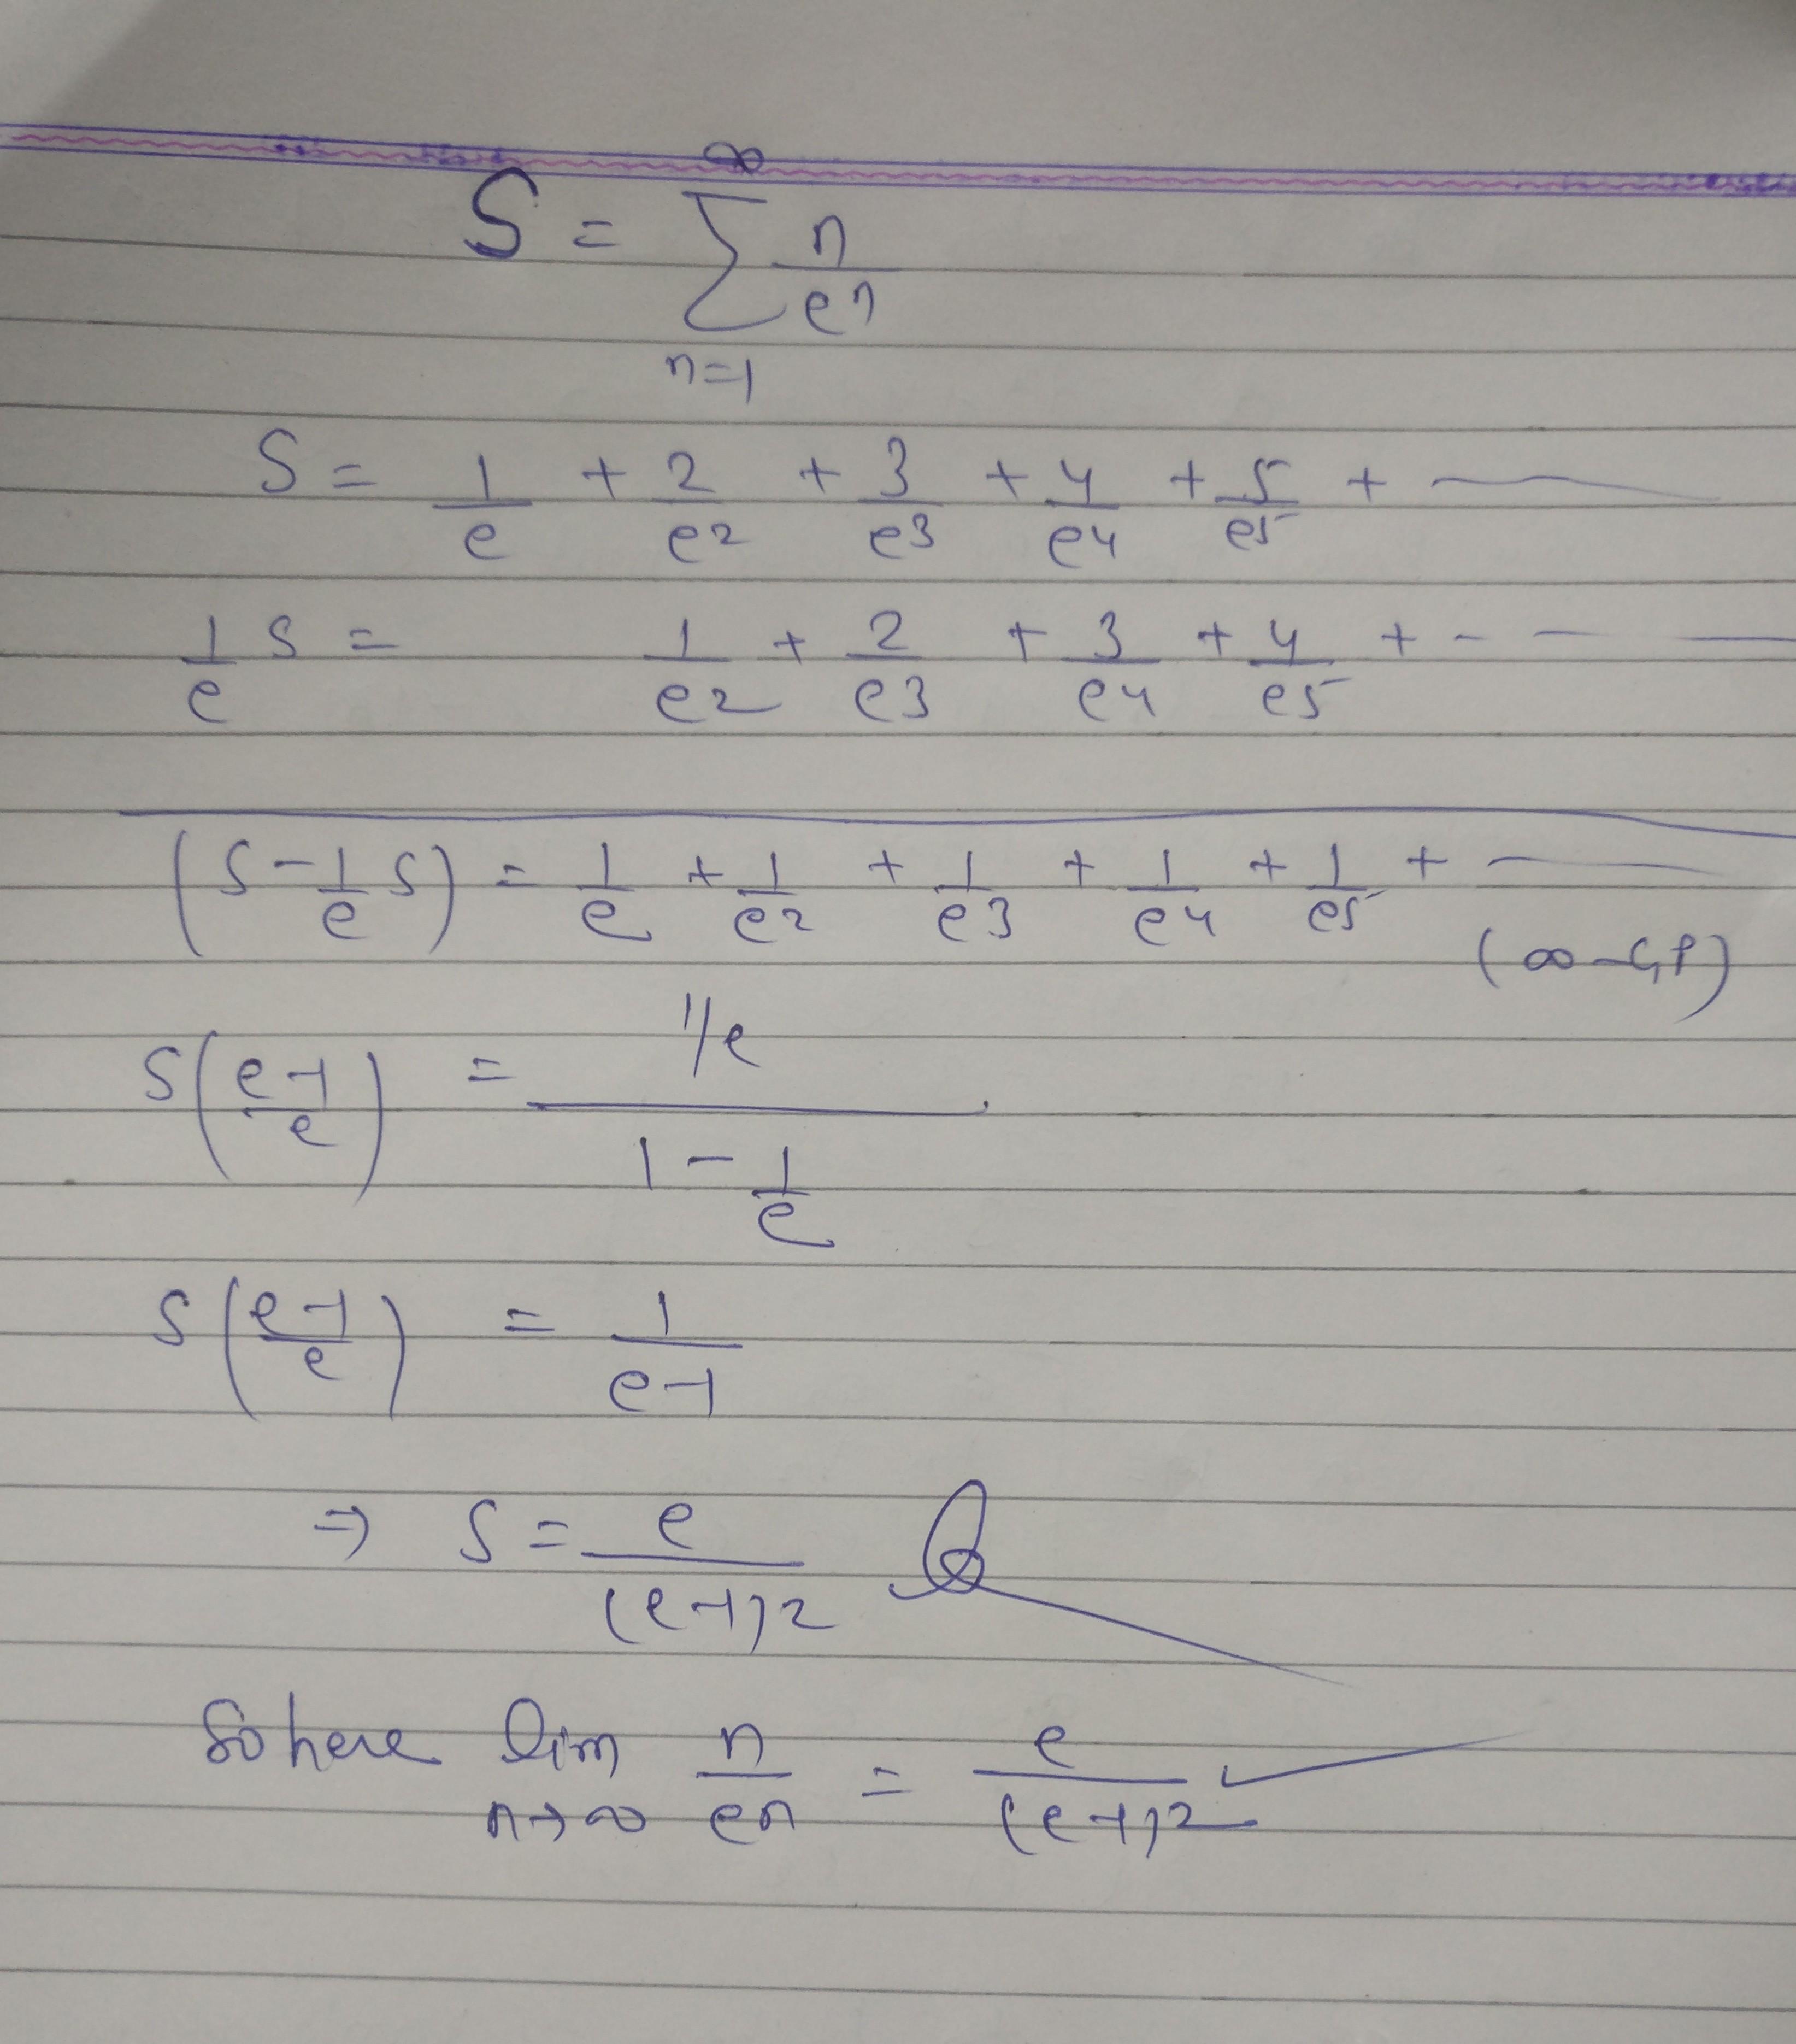 S = ∑_{n=1}^{∞} n/e^n
S = 1/e + 2/e^2 + 3/e^3 + 4/e^4 + 5/e^5 + ———
1/e S = 1/e^2 + 2/e^3 + 3/e^4 + 4/e^5 + - — —
(S - 1/e S) = 1/e + 1/e^2 + 1/e^3 + 1/e^4 + 1/e^5 + ———
(∞-GP)
S((e-1)/e) = (1/e)/(1 - 1/e)
S((e-1)/e) = 1/(e-1)
⇒ S = e/(e-1)^2
So here lim_{n→∞} n/e^n = e/(e-1)^2 ✓